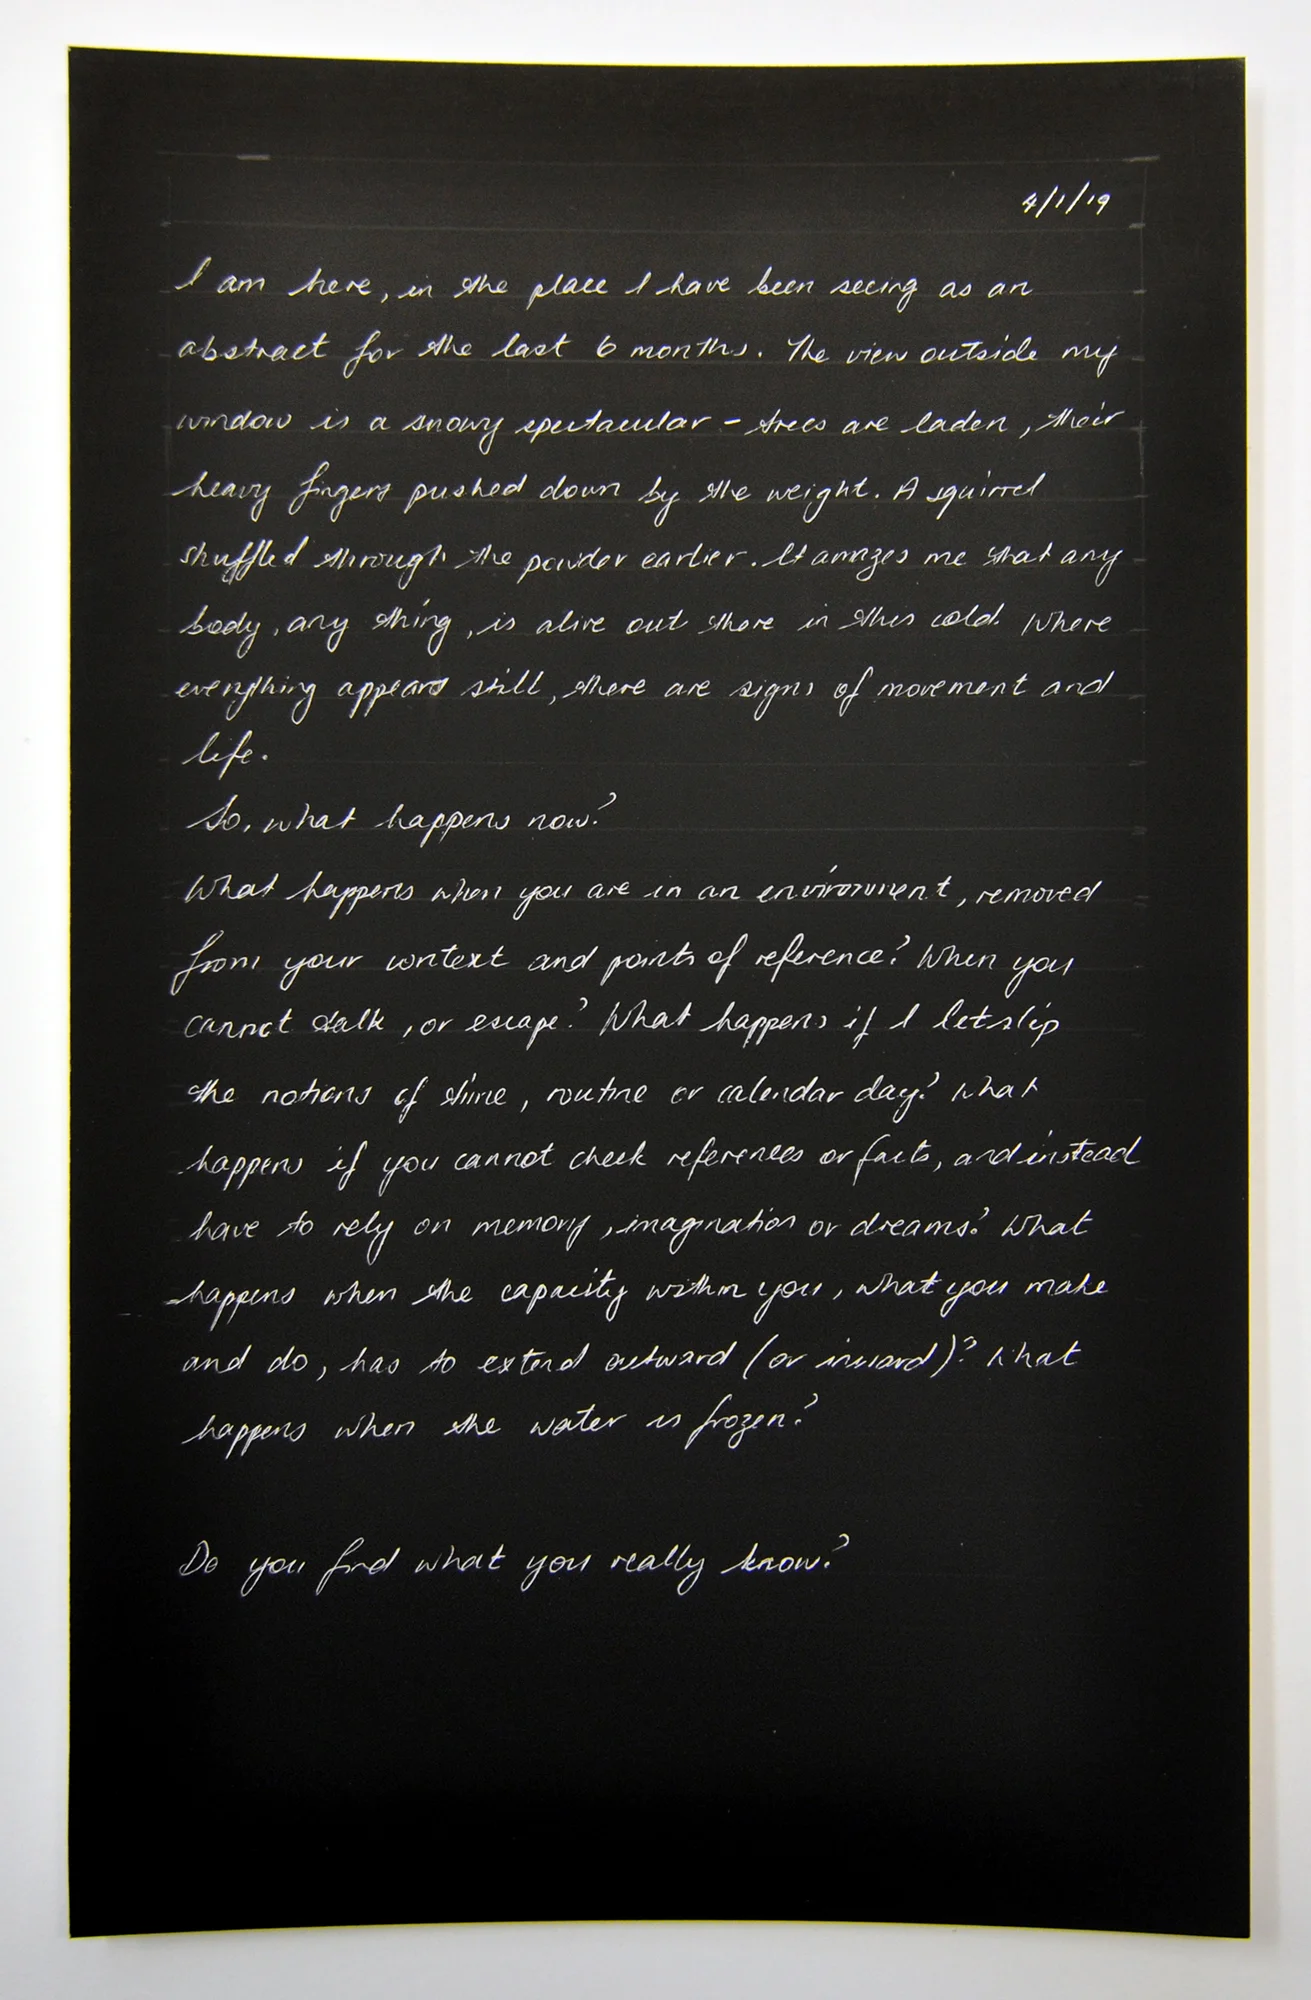 4/1/19
I am here, in the place I have been seeing as an
abstract for the last 6 months. The view outside my
window is a snowy spectacular - trees are laden, their
heavy fingers pushed down by the weight. A squirrel
shuffled through the powder earlier. It amazes me that any
body, any thing, is alive out there in this cold. Where
everything appears still, there are signs of movement and
life.
So, what happens now?
What happens when you are in an environment, removed
from your context and points of reference? When you
cannot talk, or escape? What happens if I let slip
the notions of time, routine or calendar day? What
happens if you cannot check references or facts, and instead
have to rely on memory, imagination or dreams? What
happens when the capacity within you, what you make
and do, has to extend outward (or inward)? What
happens when the water is frozen?
Do you find what you really know?